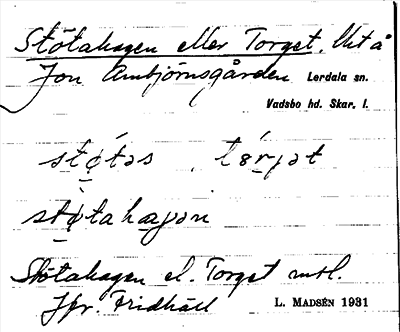 Stötahagen eller Torget. Ut å
Jon Ambjörnsgården Lerdala sn.
Vadsbo hd. Skar. l.
støtəs tórjət
støtahaɡən
Stötahagen el. Torget
Jfr. Fridhäll L. MADSÉN 1931